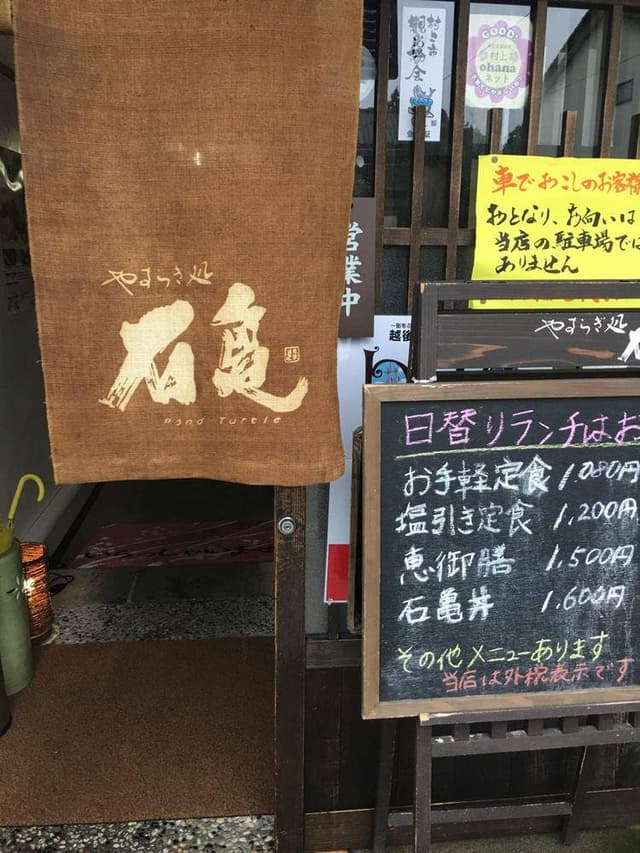 やすらぎ処
石亀
Pond Turtle
営業中
村上市
観光協会
GOOD!
村上
ohana
ネット
車でおこしのお客様
おとなり、お向いは
当店の駐車場では
ありません
越後
やすらぎ処
日替りランチはお
お手軽定食 1,080円
塩引き定食 1,200円
恵御膳 1,500円
石亀丼 1,600円
その他メニューあります
当店は外税表示です